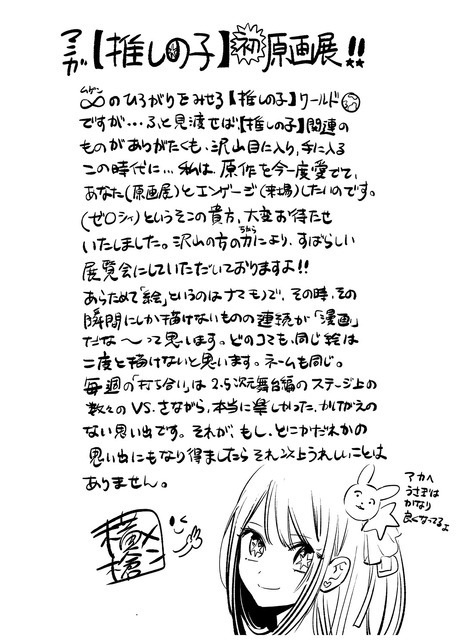 マンガ【推しの子】初原画展!!
ムゲン
∞のひろがりをみせる【推しの子】ワールド
ですが…ふと見渡せば、【推しの子】関連の
ものがありがたくも、沢山目に入り、手に入る
この時代に…私は、原作を今一度愛でて、
あなた(原画展)とエンゲージ(来場)したいのです。
(ゼ〇シィ)というそこの貴方、大変お待たせ
いたしました。沢山の方の力により、すばらしい
ちから
展覧会にしていただいておりますよ!!
あらためて「絵」というのはナマモノで、その時、その
瞬間にしか描けないものの連続が「漫画」
だな〜って思います。どのコマも、同じ絵は
二度と描けないと思います。ネームも同じ。
毎週の「打ち合い」は2.5次元舞台編のステージ上の
数々のVS.さながら、本当に楽しかった、かけがえの
ない思い出です。それが、もし、どこかだれかの
思い出にもなり得ましたらそれ以上うれしいことは
ありません。
アカへ
うさぎは
かなり
良くなってるよ
横槍
メンゴ